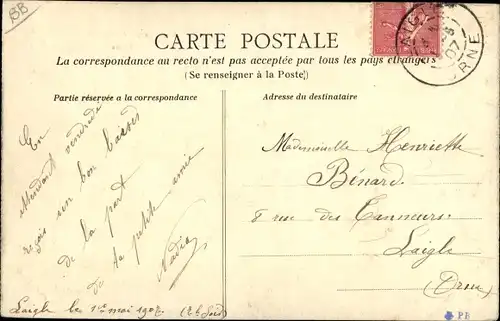 BB
CARTE POSTALE
La correspondance au recto n'est pas acceptée par tous les pays étrangers
(Se renseigner à la Poste)
Partie réservée a la correspondance
Adresse du destinataire
ORNE
07
En
attendant vendredi
reçois un bon baiser
de la part
de ta petite amie
Nadia
Laigle le 1er mai 1907
Mademoiselle Henriette
Bénard
8 rue des Tanneurs
Laigle
(Orne)